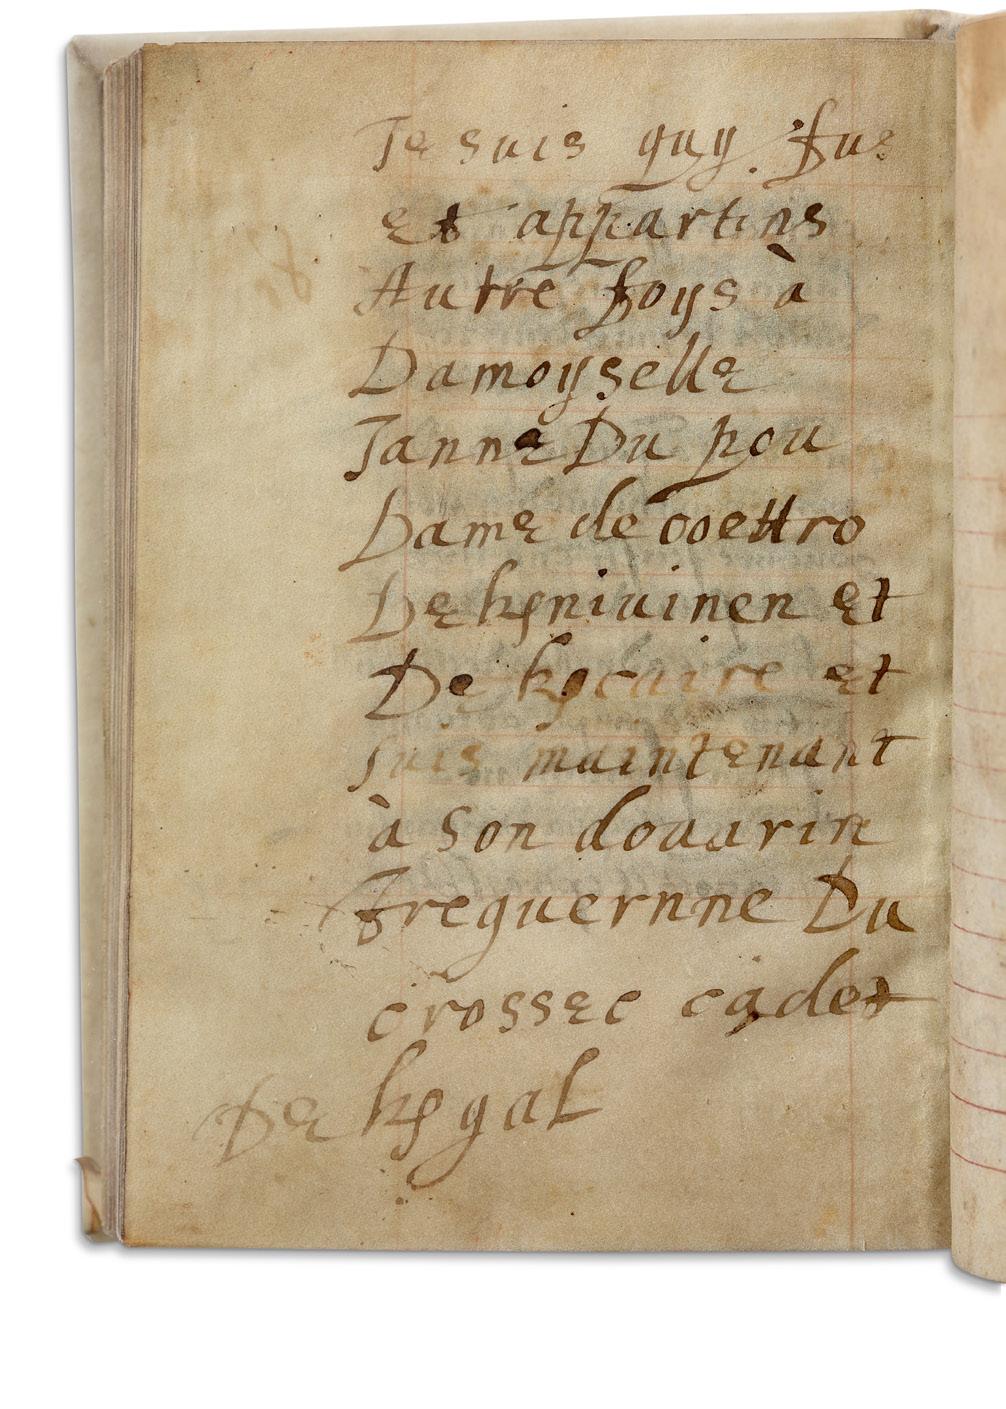 Je suis quy fus
et appartins
Autre foys à
Damoyselle
Janne Du pou
Dame de coettro
De kniuinen et
De kcaire et
suis maintenant
à son douarin
freguernne Du
crossec cadet
De kgal